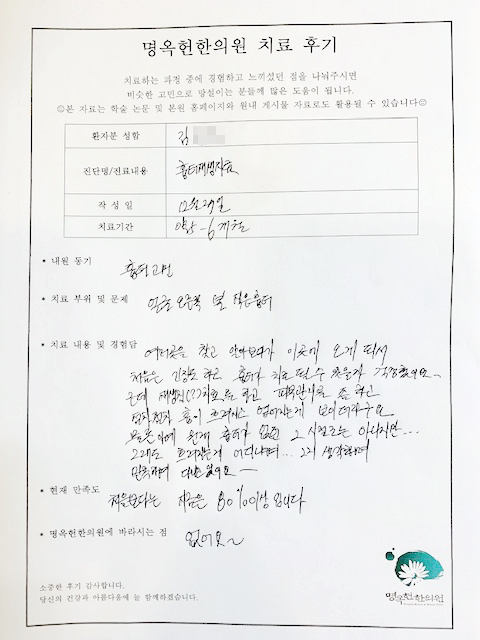 명옥헌한의원 치료 후기
치료하는 과정 중에 경험하고 느끼셨던 점을 나눠주시면
비슷한 고민으로 망설이는 분들께 많은 도움이 됩니다.
☺본 자료는 학술 논문 및 본원 홈페이지와 원내 게시물 자료로도 활용될 수 있습니다☺
환자분 성함 김
진단명/진료내용 흉터재생치료
작 성 일 12월 29일
치료기간 6개월
• 내원 동기 흉터고민
• 치료 부위 및 문제 얼굴 오른쪽 볼 작은흉터
• 치료 내용 및 경험담 여러곳을 찾고 알아보다가 이곳에 오게 되서
처음은 긴장도 하고 흉터가 치료 될 수 있을까 걱정했어요..
근데 재생침(??)치료도 하고 피부관리도 좀 하고
점차점차 흉이 흐려지고 없어지는게 보이더라구요
물론 아예 원래 흉터가 없던 그 시절로는 아니지만...
그래도 흐려진게 어디냐며... 그리 생각하며
만족하며 다녔었어요~
• 현재 만족도 처음보다는 지금은 80%이상입니다
• 명옥헌한의원에 바라시는 점 없어요~
소중한 후기 감사합니다.
당신의 건강과 아름다움에 늘 함께하겠습니다.
명옥헌한의원